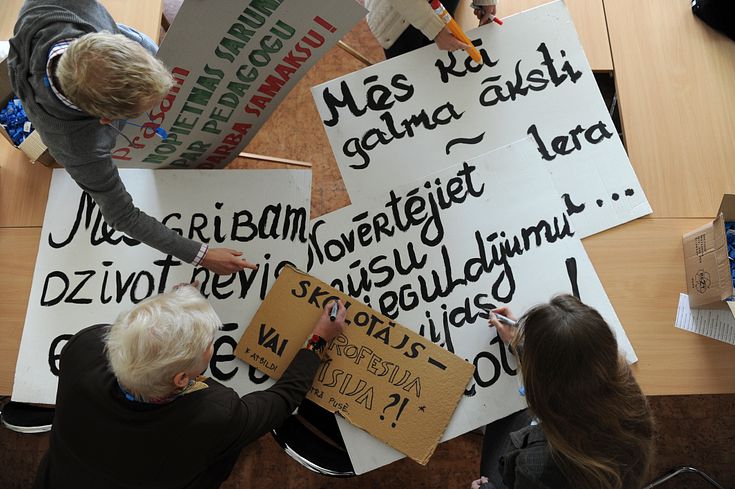 prasām
NOPIETNAS SARUN
PAR PEDAGOGU
DARBA SAMAKSU!
Mēs kā
galma āksti
~
lera
...
Mēs GRIBAM
DZĪVOT NEVIS
Novērtējiet
mūsu
ieguldījumu
!
SKOLOTĀJS –
VAI PROFESIJA
MISIJA ?!
*ATBILDI
OTRĀ PUSĒ.